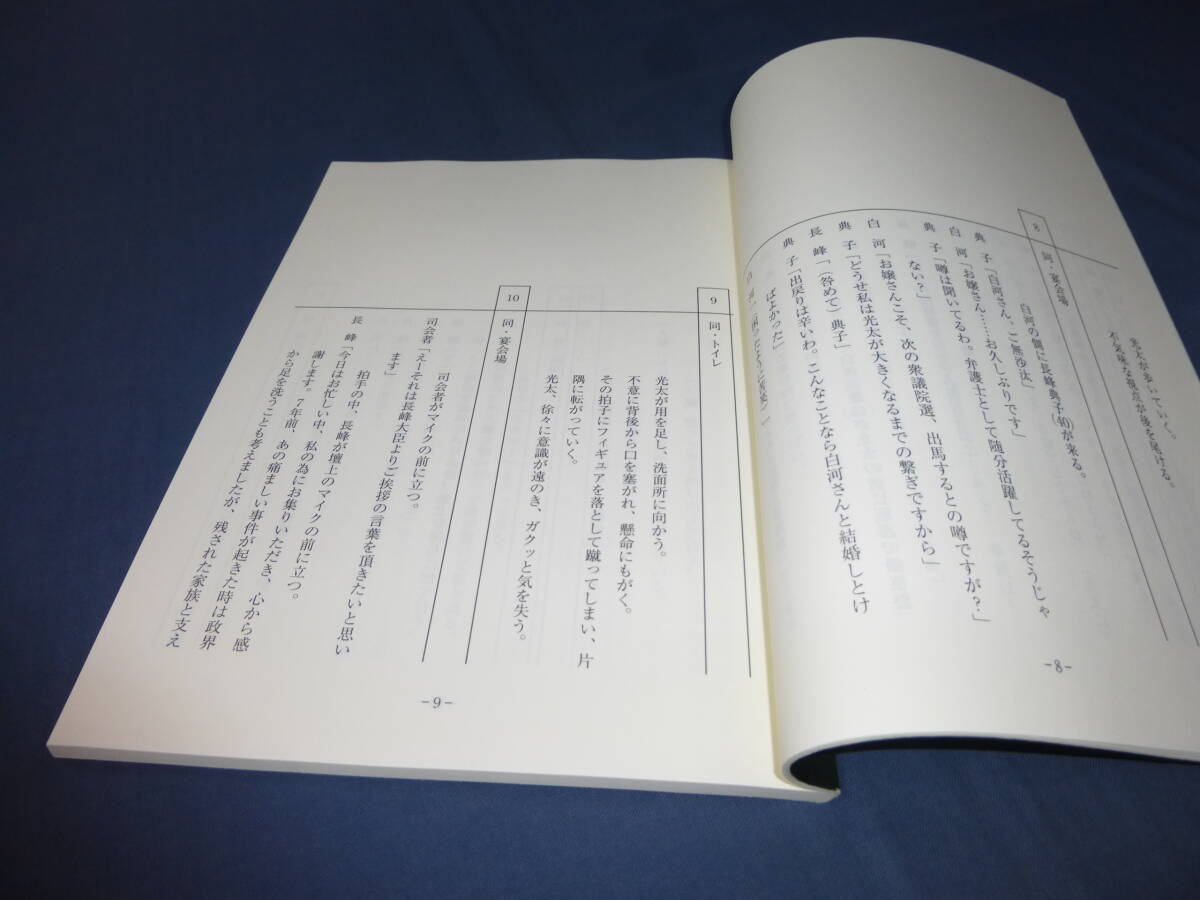 光太が歩いていく。
不気味な視点が後を尾ける。
8 同・宴会場
白河の側に長峰典子(40)が来る。
典子「白河さん、ご無沙汰」
白河「お嬢さん……お久しぶりです」
典子「噂は聞いてるわ。弁護士として随分活躍してるそうじゃ
ない?」
白河「お嬢さんこそ、次の衆議院選、出馬するとの噂ですが?」
典子「どうせ私は光太が大きくなるまでの繋ぎですから」
長峰「(咎めて)典子」
典子「出戻りは辛いわ。こんなことなら白河さんと結婚しとけ
ばよかった」
白河「(困ったように苦笑)」
-8-
9 同・トイレ
光太が用を足し、洗面所に向かう。
不意に背後から口を塞がれ、懸命にもがく。
その拍子にフィギュアを落として蹴ってしまい、片
隅に転がっていく。
光太、徐々に意識が遠のき、ガクッと気を失う。
10 同・宴会場
司会者がマイクの前に立つ。
司会者「えーそれは長峰大臣よりご挨拶の言葉を頂きたいと思い
ます」
拍手の中、長峰が壇上のマイクの前に立つ。
長峰「今日はお忙しい中、私の為にお集りいただき、心から感
謝します。7年前、あの痛ましい事件が起きた時は政界
から足を洗うことも考えましたが、残された家族と支え
-9-